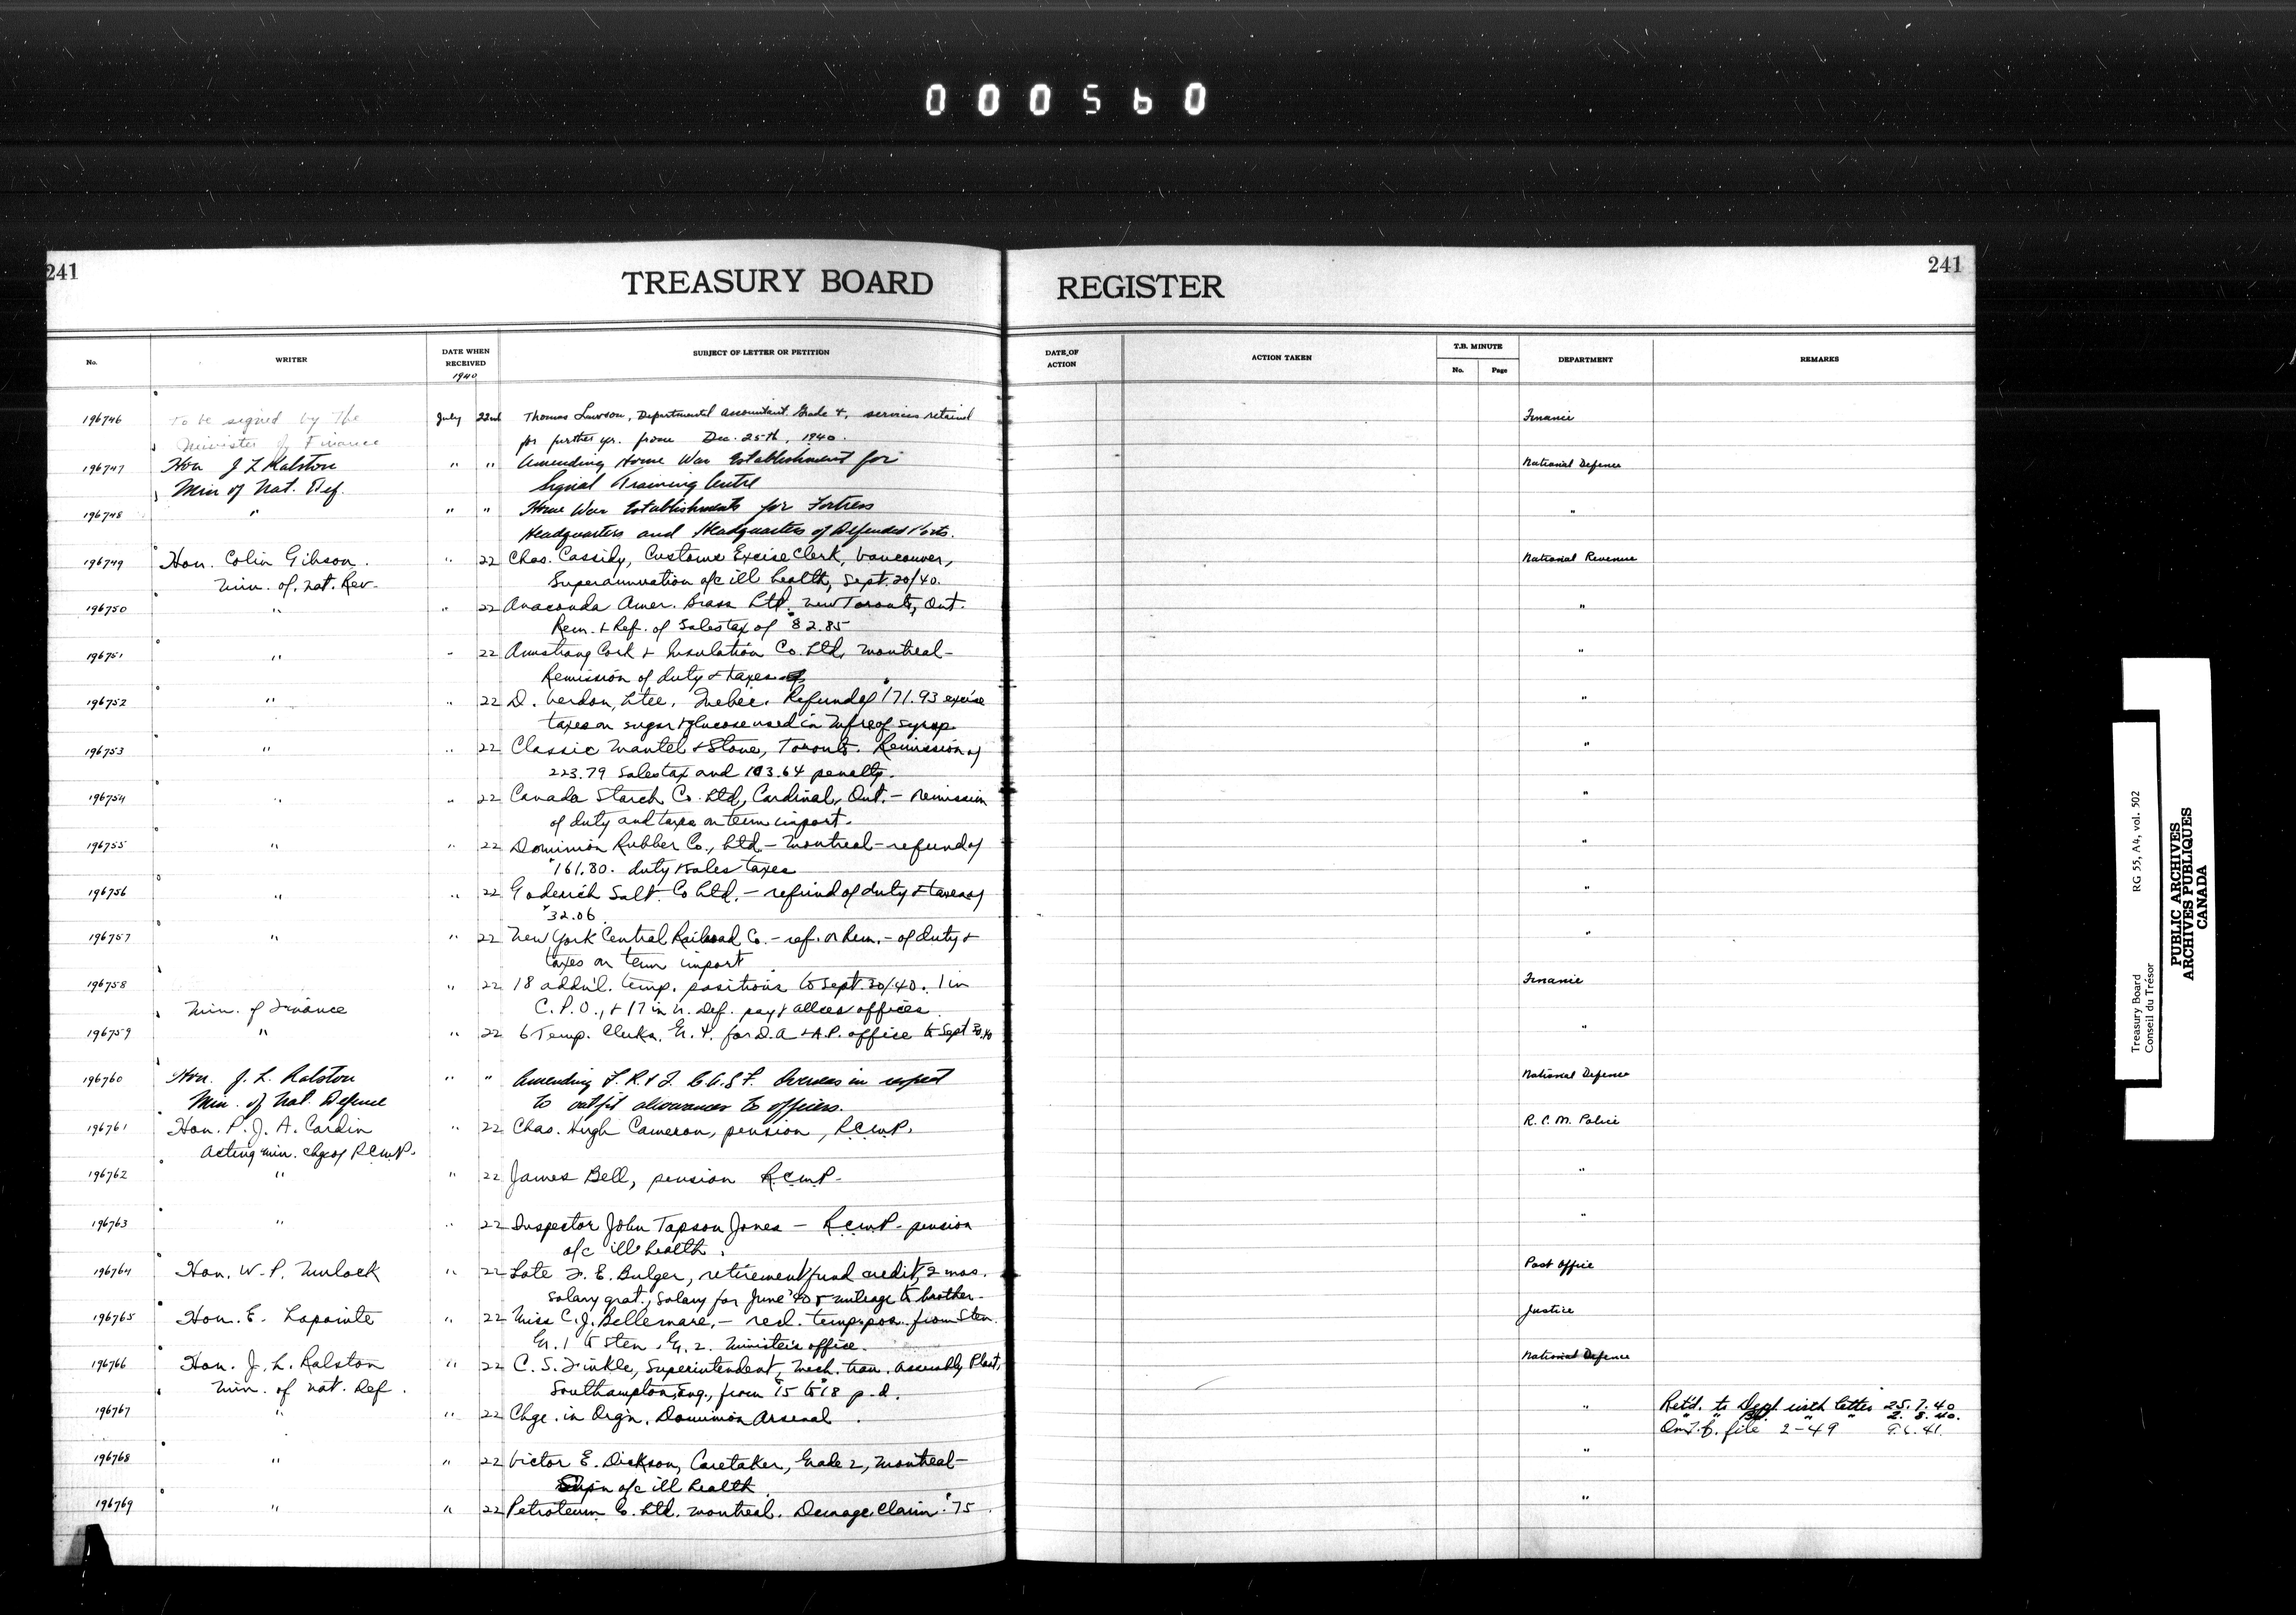 000560
241
TREASURY BOARD REGISTER
241
No. WRITER DATE WHEN RECEIVED 1940 SUBJECT OF LETTER OR PETITION DATE OF ACTION ACTION TAKEN T.B. MINUTE No. Page DEPARTMENT REMARKS
196746 To be signed by the July 22nd Thomas Lawson, Departmental Accountant Grade 4, services retained Finance
Minister of Finance for further yr. from Dec. 25th, 1940.
196747 Hon J L Ralston " " Amending Home War Establishment for National Defence
Min of Nat. Def. Signal Training Centre
196748 " " " Home War Establishments for Fortress "
Headquarters and Headquarters of Defended Ports.
196749 Hon. Colin Gibson. " 22 Chas. Cassidy, Customs Excise Clerk, Vancouver, National Revenue
Min. of Nat. Rev. Superannuation a/c ill health, Sept. 20/40.
196750 " " 22 Anaconda Amer. Brass Ltd. New Toronto, Ont. "
Rem. & Ref. of Sales tax of $82.85
196751 " " 22 Armstrong Cork & Insulation Co. Ltd, Montreal- "
Remission of duty & taxes
196752 " " 22 D. Verdon, Ltee, Quebec. Refund of $171.93 excise "
taxes on sugar & glucose used in mfre of syrup
196753 " " 22 Classic Mantel & Stone, Toronto. Remission of "
223.79 Sales tax and 103.64 penalty.
196754 " " 22 Canada Starch Co. Ltd, Cardinal, Ont. - remission "
of duty and taxes on tem import.
196755 " " 22 Dominion Rubber Co., Ltd - Montreal - refund of "
$161.80. duty & sales taxes
196756 " " 22 Goderich Salt Co Ltd. - refund of duty & taxes of "
$32.06
196757 " " 22 New York Central Railroad Co. - ref. or Rem. - of duty & "
taxes on tem import
196758 " 22 18 add'l. temp. positions to Sept. 30/40. 1 in Finance
Min. of Finance C.P.O., & 17 in N. Def. pay & allces offices.
196759 " " 22 6 Temp. Clerks, Gr. 4. for D.A & A.P. office to Sept 30.40 "
196760 Hon. J. L. Ralston " " Amending F.R.& I. C.A.S.F. Overseas in respect National Defence
Min. of Nat. Defence to outfit allowances to officers.
196761 Hon. P. J. A. Cardin " 22 Chas. Hugh Cameron, pension, R.C.M.P. R.C.M. Police
Acting Min. chge of R.C.M.P.
196762 " " 22 James Bell, pension R.C.M.P. "
196763 " " 22 Inspector John Tapson Jones - R.C.M.P. pension "
a/c ill health.
196764 Hon. W. P. Mulock " 22 Late F. E. Bulger, retirement fund credit, 2 mos. Post Office
salary grat., salary for June '40 & mileage to brother-
196765 Hon. E. Lapointe " 22 Miss C. J. Bellemare, - recl. temp. pos. from Sten. Justice
Gr. 1 to Sten. Gr. 2. Minister's office.
196766 Hon. J. L. Ralston " 22 C. S. Finkle, Superintendent, Mech. tran. Assembly Plant, National Defence
Min. of Nat. Def. Southampton, Eng., from $15 to $18 p.d.
196767 " " 22 Chge. in Org'n. Dominion Arsenal. " Ret'd. to Dept with letter 25.7.40
" " " " 2. 8. 40.
On T.B. file 2-49 9.6.41.
196768 " " 22 Victor E. Dickson, Caretaker, Grade 2, Montreal- "
a/c ill health.
196769 " " 22 Petroleum Co. Ltd. Montreal. Damage Claim $75. "
Treasury Board RG 55, A4, vol. 502
Conseil du Trésor
PUBLIC ARCHIVES
ARCHIVES PUBLIQUES
CANADA